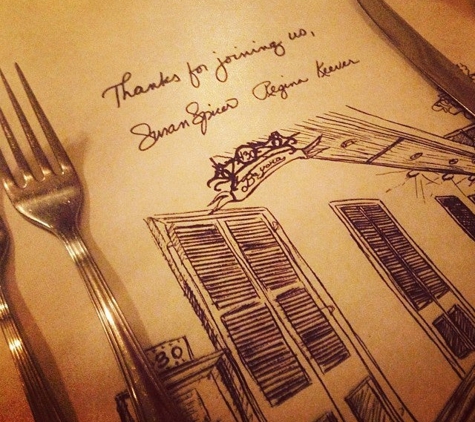 Thanks for joining us,
Susan Spicer Regina Keever
Bayona
430